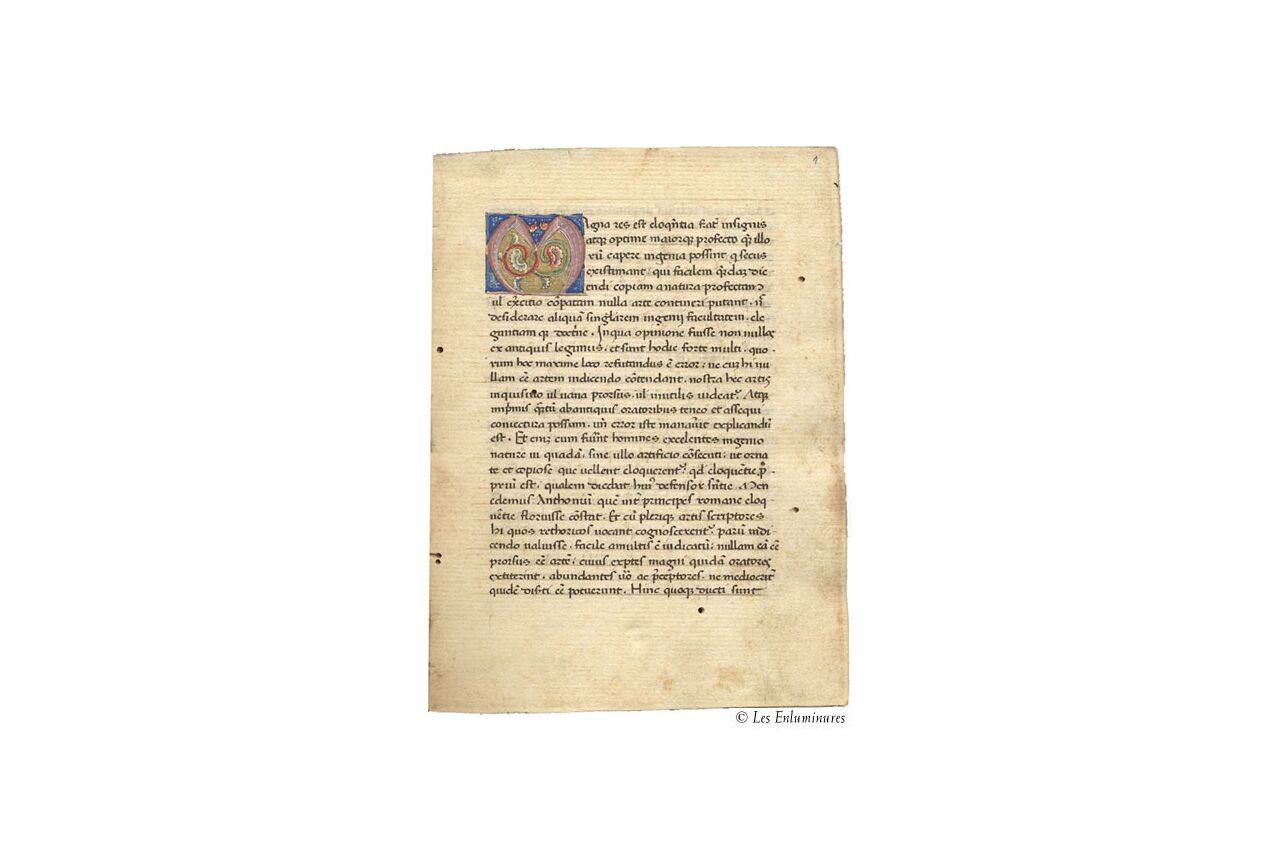 1
Magna res est eloqñtia frat̃ insignis
atqꝫ optime maiorqꝫ profecto qꝫ illo
rũ capere ingenia possint q secus
existimant: qui facilem qñdaꝫ dic
endi copiam a natura profectam
ul exc̃itio cõpatam nulla arte contineri putant. ñ
desiderare aliquã singl̃arem ingenij facultatem. ele
gantiam qꝫ doctr̃ie. Inqua opinione fuisse non nullos
ex antiquis legimus. et sunt hodie forte multi. quo
rum hoc maxime loco refutandus ẽ error: ne cur hi nu
llam eẽ artem indicendo cõtendant. nostra hec artis
inquisitio ul uana prorsus. ul inutilis uideat᷑. Atqꝫ
inp̃mis qñtũ abantiquis oratoribus teneo et assequi
coniectura possum. uñ error iste manauit explicandũ
est. Et enim cum fuer̃nt homines excelentes ingenio
nature ui quadã. sine ullo artificio cõsecuti: ut orna
te et copiose que uellent eloquerent᷑. qd eloquẽtie ꝓ
priũ est. qualem dicebat hui᷒ defensor sñtie.
edemus Anthoniũ quẽ int̃ principes romane eloq
uẽtie floruisse cõstat. Et cũ pleriqꝫ artis scriptores
hi quos rethoricos uocant cognoscerent᷑. parũ indi
cendo ualuisse. facile amultis ẽ iudicatũ: nullam eã eẽ
prorsus eẽ artẽ: cuius exptes magni quidã oratores
extiterint. abundantes ũo ac p̃ceptores. ne mediocrit̃
quidẽ dis̃ti eẽ potuerunt. Hinc quoqꝫ ducti sunt
© Les Enluminures